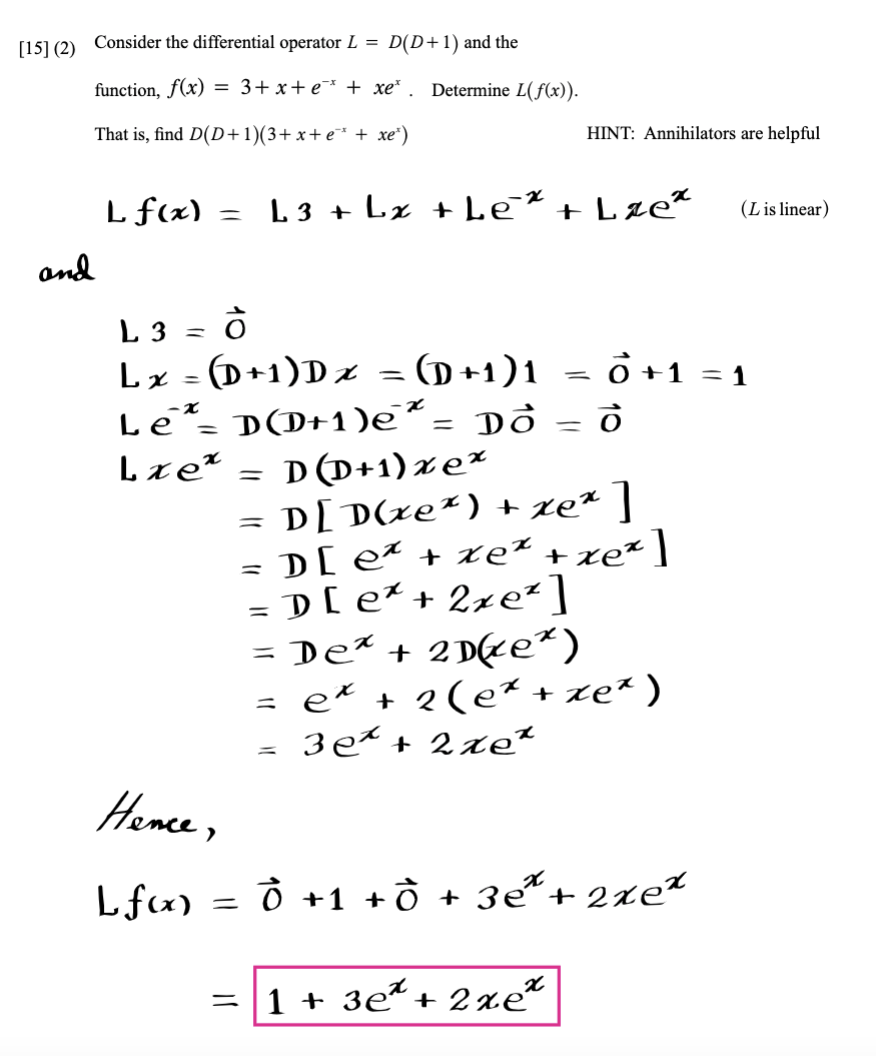 [15] (2) Consider the differential operator L = D(D+1) and the
function, f(x) = 3+x+e⁻ˣ + xeˣ . Determine L(f(x)).
That is, find D(D+1)(3+x+e⁻ˣ + xeˣ) HINT: Annihilators are helpful
L f(x) = L3 + Lx + Le⁻ˣ + Lxeˣ (L is linear)
and
L3 = 0⃗
Lx = (D+1)Dx = (D+1)1 = 0⃗ +1 = 1
Le⁻ˣ = D(D+1)e⁻ˣ = D0⃗ = 0⃗
Lxeˣ = D(D+1)xeˣ
= D[D(xeˣ) + xeˣ]
= D[eˣ + xeˣ + xeˣ]
= D[eˣ + 2xeˣ]
= Deˣ + 2D(xeˣ)
= eˣ + 2(eˣ + xeˣ)
= 3eˣ + 2xeˣ
Hence,
Lf(x) = 0⃗ +1 +0⃗ + 3eˣ + 2xeˣ
= 1 + 3eˣ + 2xeˣ